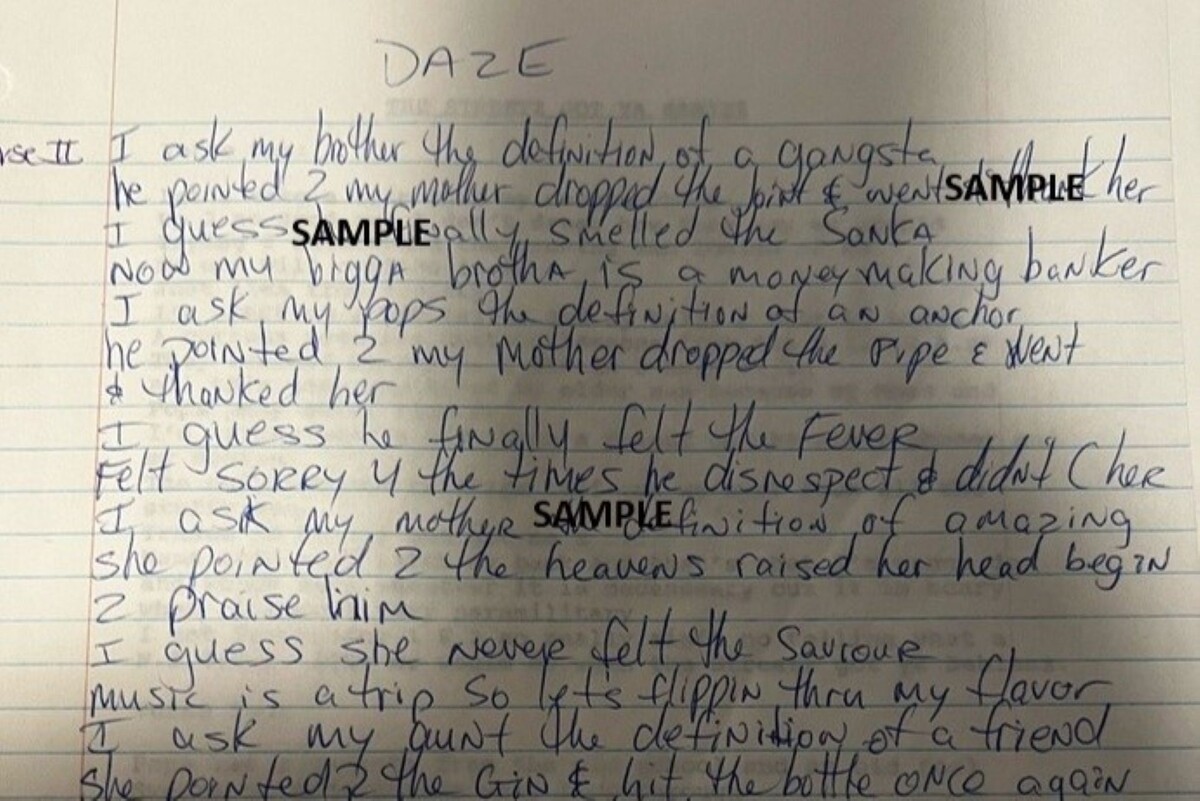 DAZE
rse II I ask my brother the definition of a gangsta
he pointed 2 my mother dropped the joint & went SAMPLE her
I guess SAMPLE smelled the SANKA
NOW my biggA brothA is a money making banker
I ask my pops the definition of AN anchor
he pointed 2 my Mother dropped the Pipe & Went
& thanked her
I guess he finally felt the Fever
Felt SORRY 4 the times he disrespect & didn't Cher
I ask my mother SAMPLE definition of amazing
she pointed 2 the heavens raised her head begin
2 praise him
I guess she Never felt the Saviour
music is a trip So let's flippin thru my flavor
I ask my aunt the definition of a friend
she pointed 2 the GiN & hit the bottle ONCE again